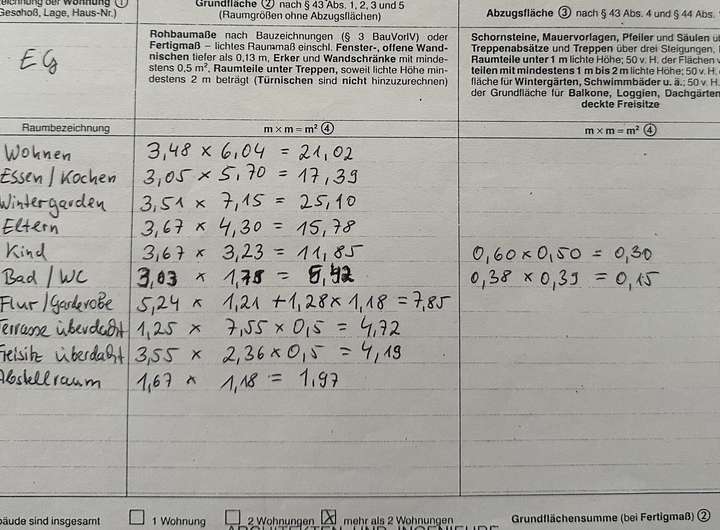 zeichnung der Wohnung ①
Geschoß, Lage, Haus-Nr.)
Grundfläche ② nach § 43 Abs. 1, 2, 3 und 5
(Raumgrößen ohne Abzugsflächen)
Abzugsfläche ③ nach § 43 Abs. 4 und § 44 Abs.
EG
Rohbaumaße nach Bauzeichnungen (§ 3 BauVorlV) oder
Fertigmaß – lichtes Raummaß einschl. Fenster-, offene Wand-
nischen tiefer als 0,13 m, Erker und Wandschränke mit minde-
stens 0,5 m², Raumteile unter Treppen, soweit lichte Höhe min-
destens 2 m beträgt (Türnischen sind nicht hinzuzurechnen)
Schornsteine, Mauervorlagen, Pfeiler und Säulen
Treppenabsätze und Treppen über drei Steigungen,
Raumteile unter 1 m lichte Höhe; 50 v. H. der Flächen v
teilen mit mindestens 1 m bis 2 m lichte Höhe; 50 v. H.
fläche für Wintergärten, Schwimmbäder u. ä.; 50 v. H.
der Grundfläche für Balkone, Loggien, Dachgärten
deckte Freisitze
Raumbezeichnung
m × m = m² ④
m × m = m² ④
Wohnen 3,48 × 6,04 = 21,02
Essen / Kochen 3,05 × 5,70 = 17,39
Wintergarden 3,51 × 7,15 = 25,10
Eltern 3,67 × 4,30 = 15,78
Kind 3,67 × 3,23 = 11,85 0,60 × 0,50 = 0,30
Bad / WC 3,03 × 1,78 = 0,38 × 0,39 = 0,15
Flur / Garderobe 5,24 × 1,21 + 1,28 × 1,18 = 7,85
Terrasse überdacht 1,25 × 7,55 × 0,5 = 4,72
Freisitz überdacht 3,55 × 2,36 × 0,5 = 4,19
Abstellraum 1,67 × 1,18 = 1,97
bäude sind insgesamt 1 Wohnung 2 Wohnungen mehr als 2 Wohnungen Grundflächensumme (bei Fertigmaß) ②
ARCHITEKTEN UND INGENIEURE